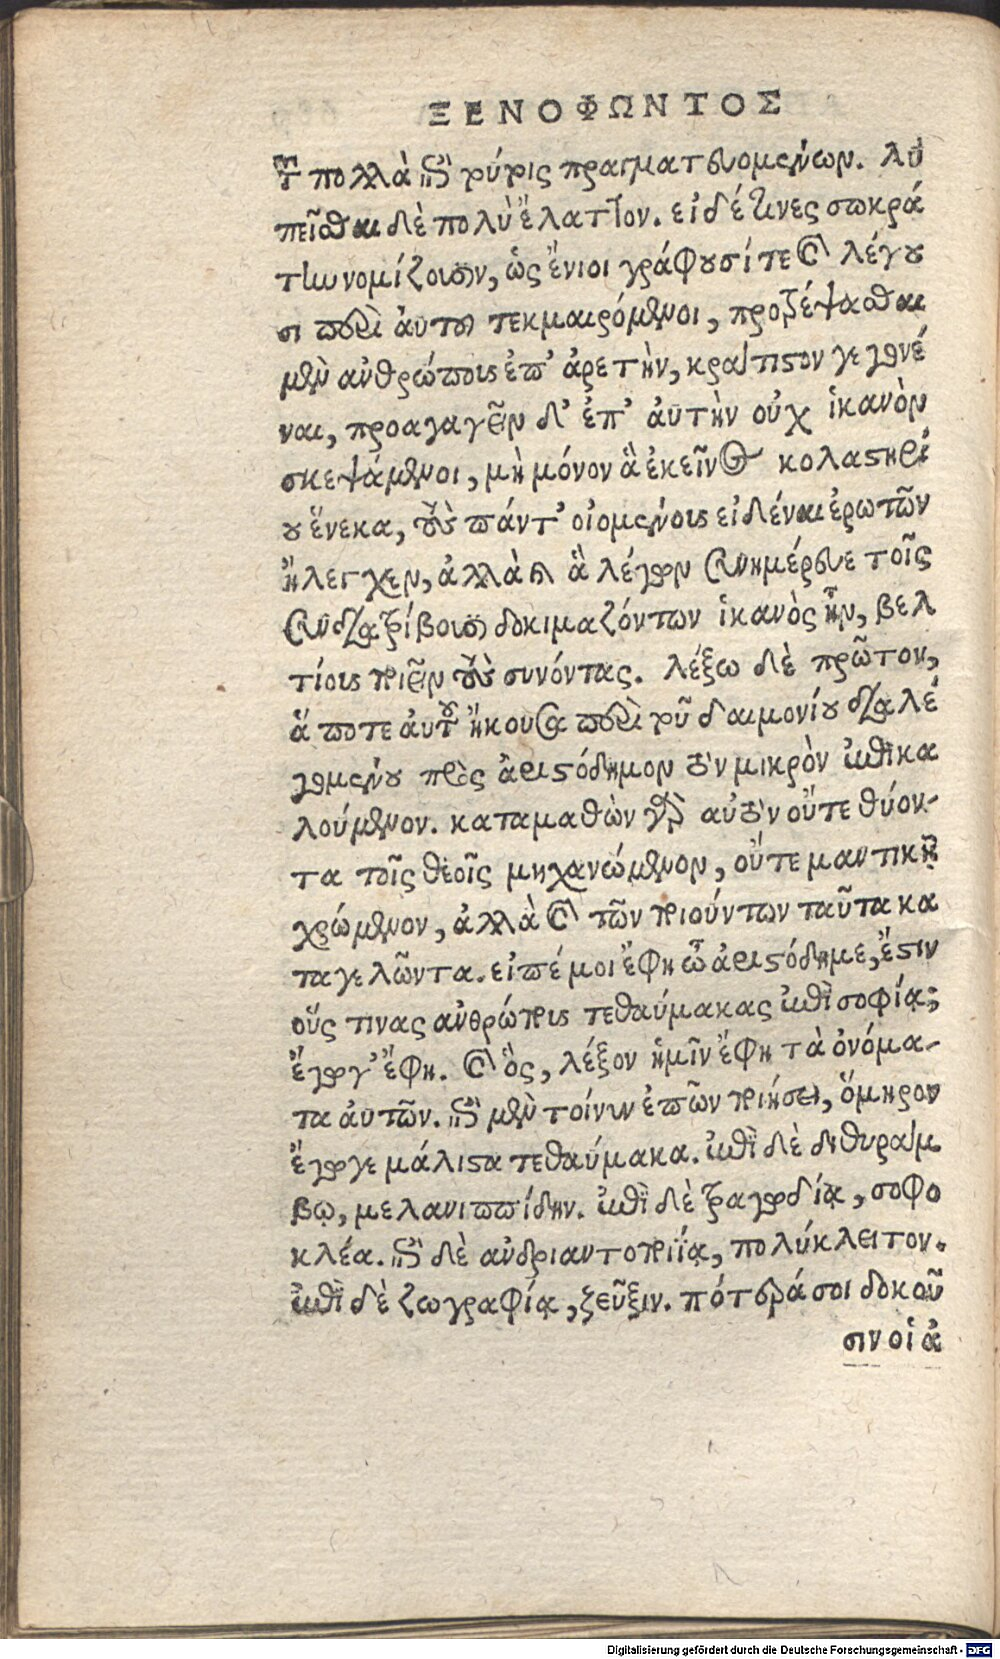 ΞΕΝΟΦΩΝΤΟΣ
τῶν πολλὰ ἐπὶ τούτοις πραγματευομένων. λυ
πεῖσθαι δὲ πολὺ ἔλαττον. εἰ δέ τινες σωκρά
την νομίζουσιν, ὡς ἔνιοι γράφουσί τε καὶ λέγου
σι περὶ αὐτοῦ τεκμαιρόμενοι, προτρέψασθαι
μὲν ἀνθρώπους ἐπ’ ἀρετὴν, κράτιστον γεγονέ
ναι, προαγαγεῖν δ’ ἐπ’ ἀυτὴν οὐχ ἱκανὸν
σκεψάμενοι, μὴ μόνον ἃ ἐκεῖνος κολαστηρί
ου ἕνεκα, τοὺς πάντ’ οἰομένους εἰδέναι ἐρωτῶν
ἤλεγχεν, ἀλλὰ καὶ ἃ λέγων συνημέρευε τοῖς
συνδιατρίβουσι δοκιμαζόντων ἱκανὸς ἦν, βελ
τίους ποιεῖν τοὺς συνόντας. λέξω δὲ πρῶτον,
ἅ ποτε ἀυτοῦ ἤκουσα περὶ τοῦ δαιμονίου διαλε
γομένου πρὸς ἀριστόδημον τὸν μικρὸν ἐπικα
λούμενον. καταμαθὼν γὰρ αὐτὸν οὔτε θύον-
τα τοῖς θεοῖς μηχανώμενον, οὔτε μαντικῇ
χρώμενον, ἀλλὰ καὶ τῶν ποιούντων ταῦτα κα
ταγελῶντα. εἰπέ μοι ἔφη ὦ ἀριστόδημε, ἔστιν
οὕς τινας ἀνθρώπους τεθαύμακας ἐπὶ σοφίᾳ;
ἔγωγ’ ἔφη. καὶ ὃς, λέξον ἡμῖν ἔφη τὰ ὀνόμα-
τα ἀυτῶν. ἐπὶ μὲν τοίνυν ἐπῶν ποιήσει, ὅμηρον
ἔγωγε μάλιστα τεθαύμακα. ἐπὶ δὲ διθυράμ
βῳ, μελανιππίδην. ἐπὶ δὲ τραγῳδίᾳ, σοφο
κλέα. ἐπὶ δὲ ἀνδριαντοποιΐᾳ, πολύκλειτον.
ἐπὶ δὲ ζωγραφίᾳ, ζεῦξιν. πότερά σοι δοκοῦ
σιν οἱ ἀ
Digitalisierung gefördert durch die Deutsche Forschungsgemeinschaft - DFG